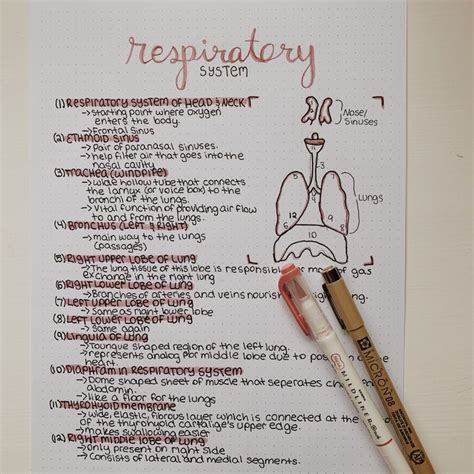 respiratory
SYSTEM
(1) RESPIRATORY SYSTEM OF HEAD & NECK
→ starting point where oxygen
enters the body.
→ Frontal sinus
(2) ETHMOID SINUS
→ Pair of paranasal sinuses.
→ help filter air that goes into the
nasal cavity.
(3) TRACHEA (WINDPIPE)
→ wide hollow tube that connects
the larnyx (or voice box) to the
bronchi of the lungs.
→ Vital function of providing air flow
to and from the lungs.
(4) BRONCHUS (LEFT & RIGHT)
→ main way to the lungs
(passages)
(5) RIGHT UPPER LOBE OF LUNG
→ The lung tissue of this lobe is responsible of gas
exchange in the right lung
(6) RIGHT LOWER LOBE OF LUNG
→ Branches of arteries and veins nourish right lung.
(7) LEFT UPPER LOBE OF LUNG
→ Same as right lower lobe
(8) LEFT LOWER LOBE OF LUNG
→ Same again
(9) LINGULA OF LUNG
→ Toungue shaped region of the left lung.
→ represents analog for middle lobe due to position
heart.
(10) DIAPHRAM IN RESPIRATORY SYSTEM
→ Dome shaped sheet of muscle that seperates
abdomen.
→ like a floor for the lungs
(11) THYROHYOID MEMBRANE
→ wide, elastic, fibrous layer which is connected at the
of the thyrohyoid cartalige's upper edge.
→ makes swallowing easier
(12) RIGHT MIDDLE LOBE OF LUNG
→ only present on right side
→ Consists of lateral and medial segments.
Nose/
Sinuses
3
Lungs
5
6
12
6
9
8
10
MILDLINER
MICRON 05